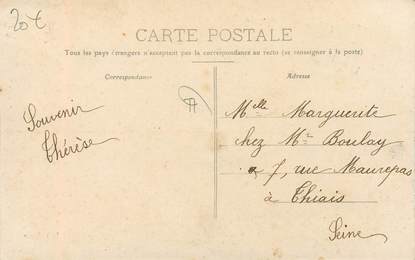 20€
CARTE POSTALE
Tous les pays étrangers n'acceptent pas la correspondance au recto (se renseigner à la poste)
Correspondance
Adresse
Souvenir
Thérèse
Melle Marguerite
chez Mr Boulay
7, rue Maurepas
à Thiais
Seine